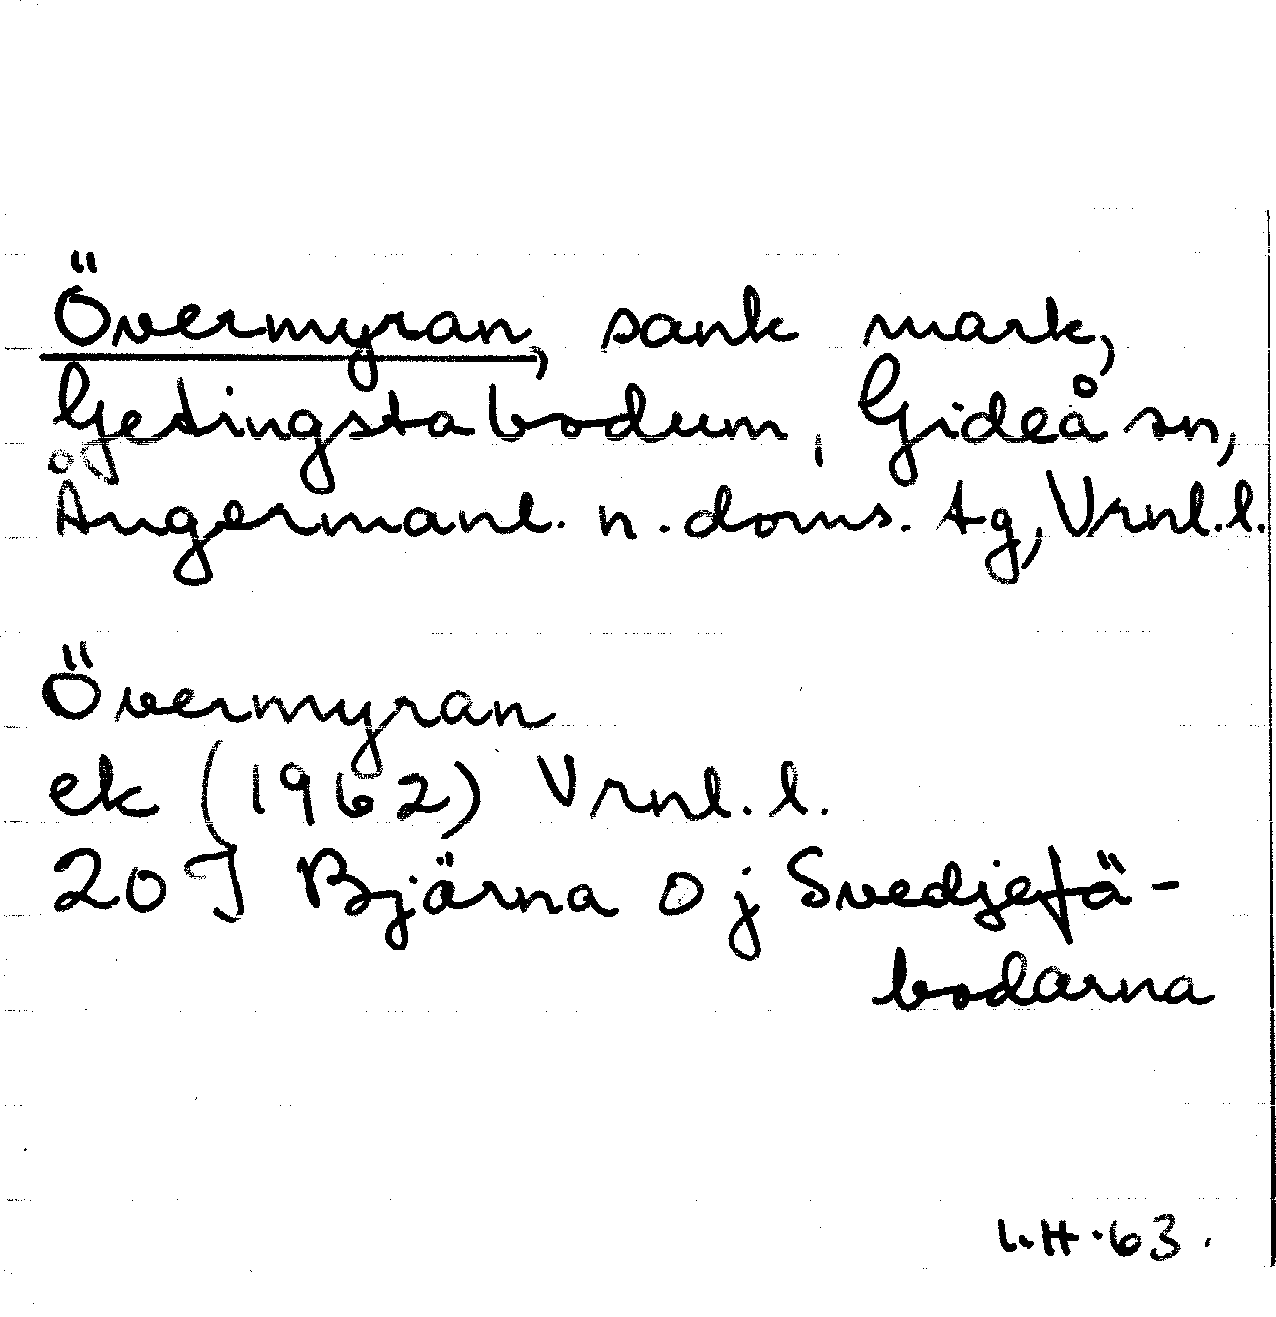 Övermyran, sank mark,
Getingstabodum, Gideå sn,
Ångermanl. n. doms. tg, Vrnl. l.
Övermyran
ek (1962) Vrnl. l.
20 J Bjärna 0 j Svedjefä-
bodarna
L.H. 63.